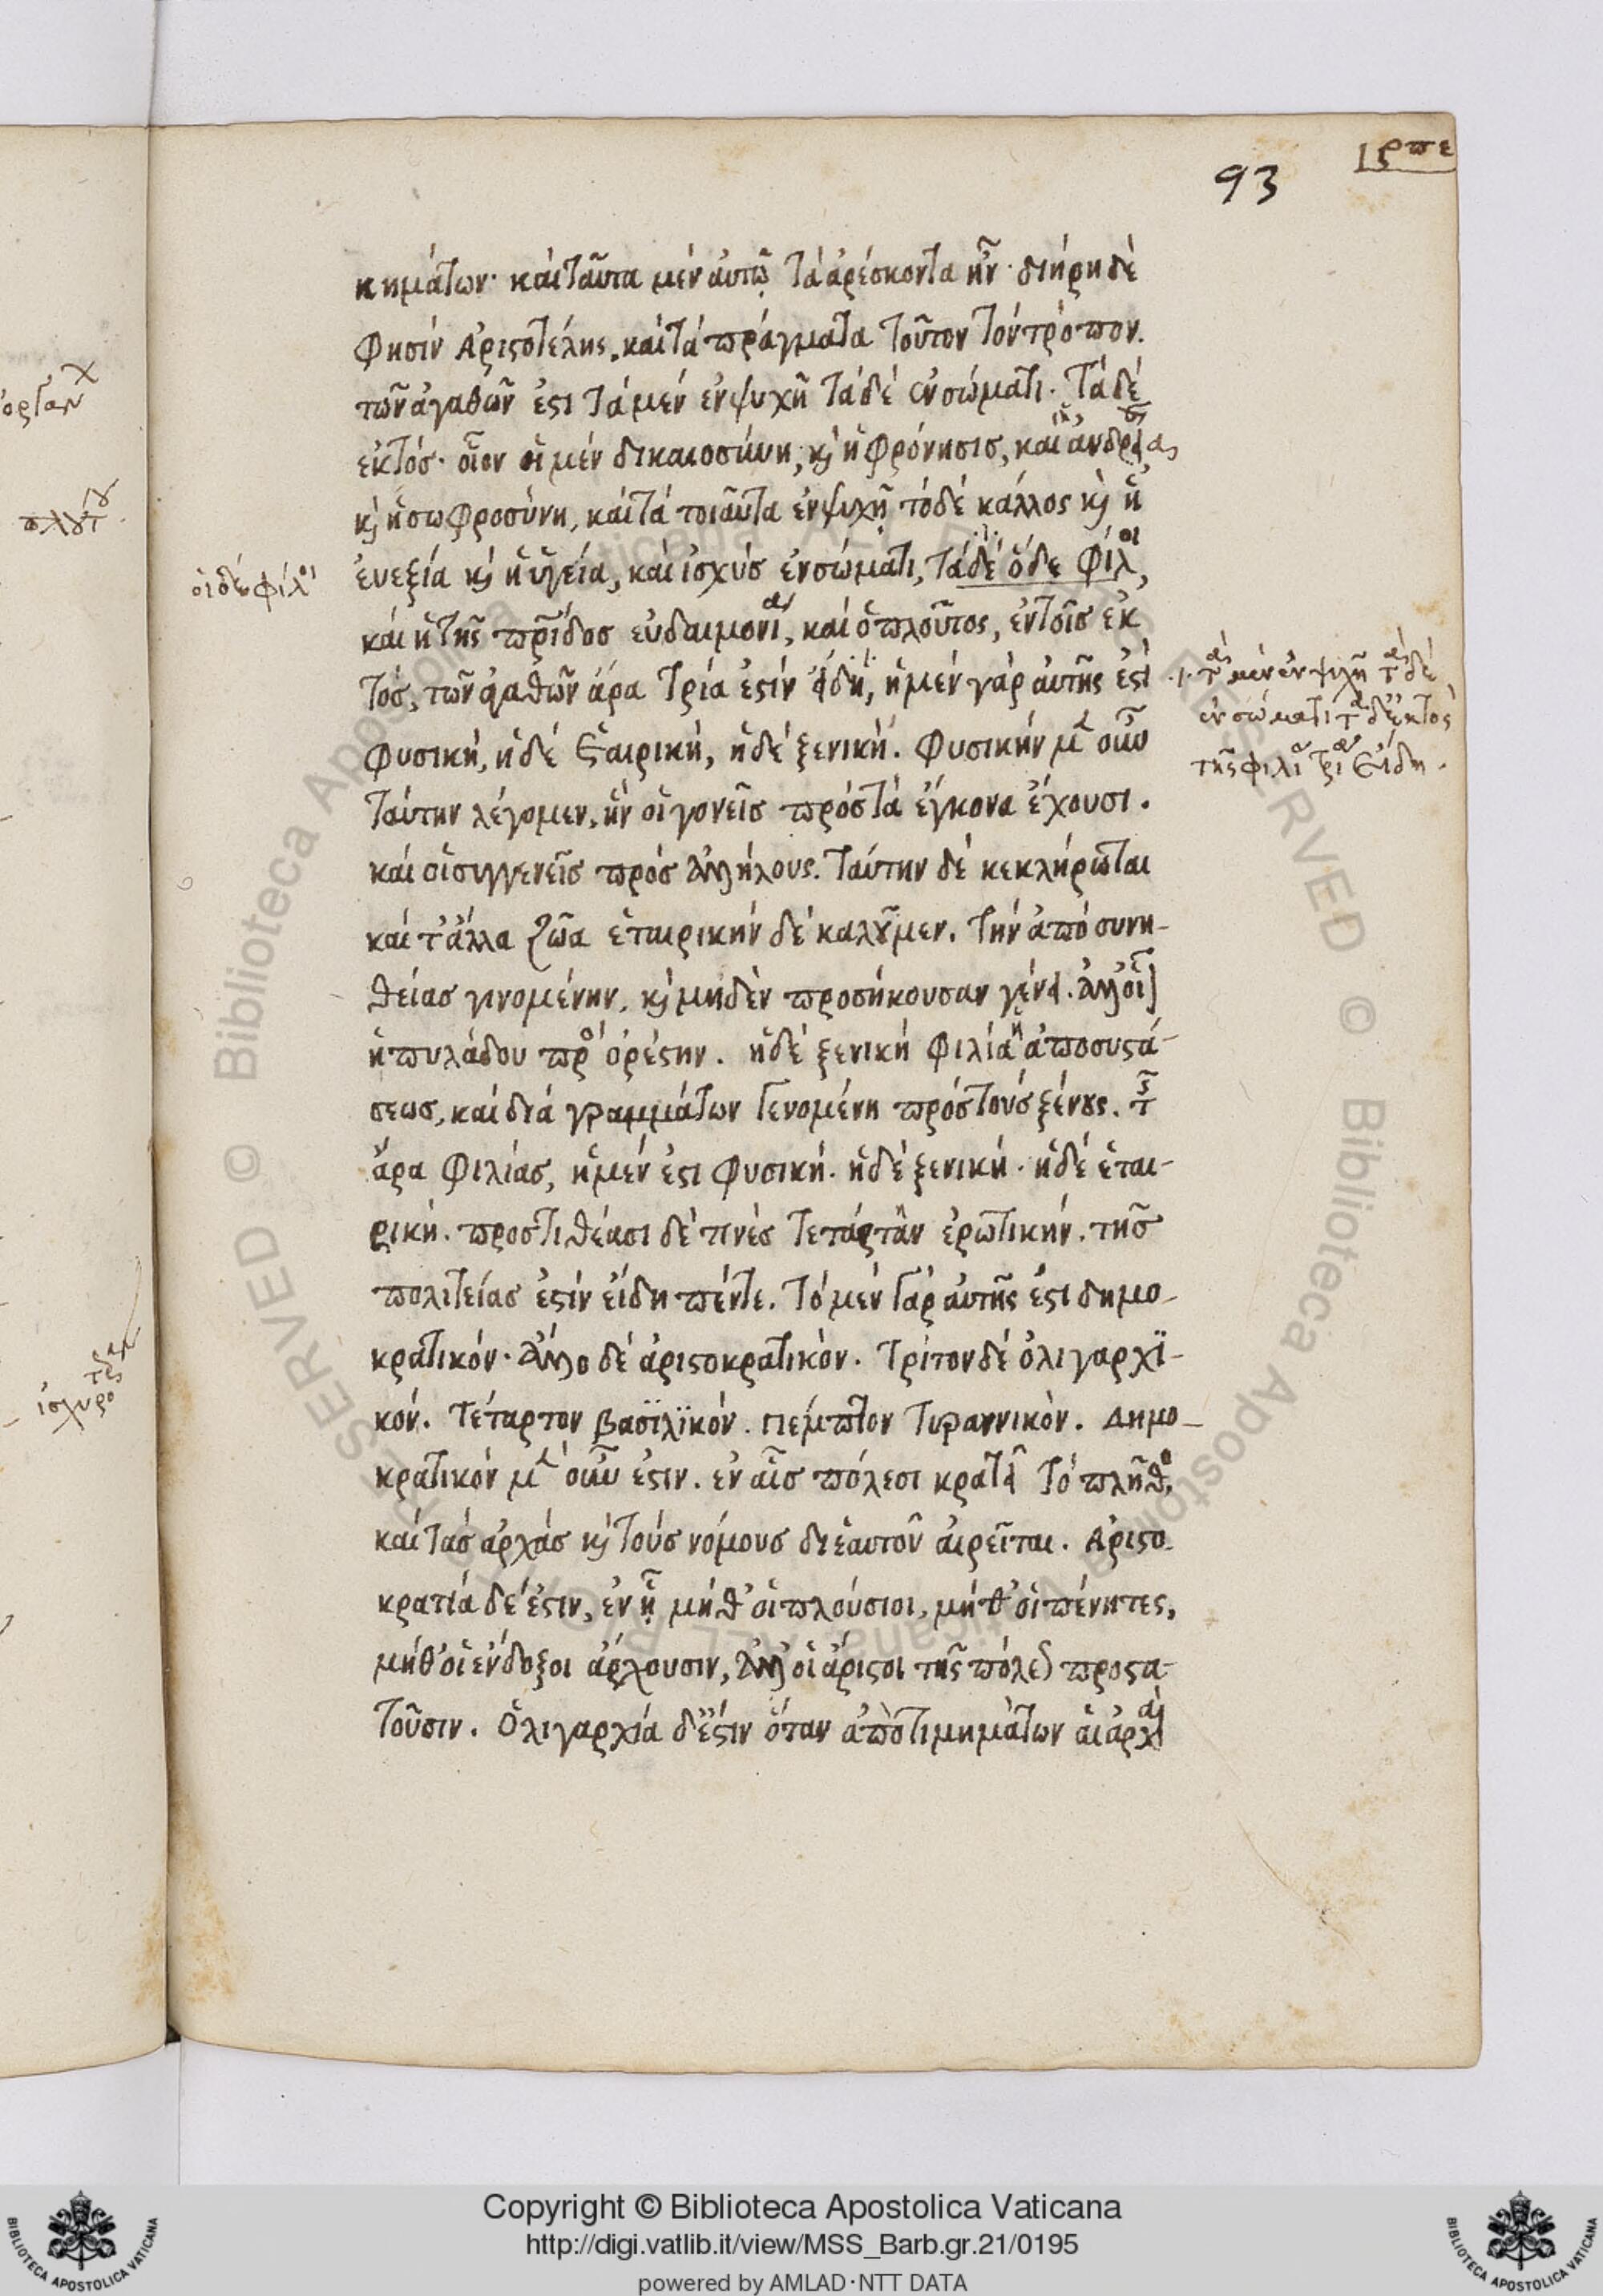 ρπε
93
κημάτων· καὶ ταῦτα μὲν αὐτῷ τὰ ἀρέσκοντα ἦν· διήρη δὲ
φησὶν Ἀριστοτέλης, καὶ τὰ πράγματα τοῦτον τὸν τρόπον.
τῶν ἀγαθῶν ἐστι τὰ μὲν ἐν ψυχῆ τὰ δὲ ἐν σώματι. τὰ δὲ
ἐκτός· οἷον οἱ μὲν δικαιοσύνη, κ ἡ φρόνησις, καὶ ἀνδρεία
κ ἡ σωφροσύνη, καὶ τὰ τοιαῦτα ἐν ψυχῇ τὸ δὲ κάλλος κ ἡ
οἱ δὲ φίλοι
εὐεξία κ ἡ ὑγεία, καὶ ἰσχὺς ἐν σώματι, τὰ δὲ ὅδε φίλοι,
καὶ ἡ τῆς πρίδος εὐδαιμονία, καὶ ὁ πλοῦτος, ἐν τοῖς ἐκ
τός, τῶν ἀγαθῶν ἄρα τρία ἐστὶν εἴδη, ἡ μὲν γὰρ αὐτῆς ἐστὶ
τὰ μὲν ἐν ψυχῆ τὰ δὲ
ἐν σώματι τὰ δὲ ἐκτὸς
τῆς φιλίας τρία εἴδη.
φυσική, ἡ δὲ ἑταιρική, ἡ δὲ ξενική. φυσικὴν μὲν οὖν
ταύτην λέγομεν, ἣν οἱ γονεῖς πρὸς τὰ ἔγκονα ἔχουσι.
καὶ οἱ συγγενεῖς πρὸς ἀλλήλους. ταύτην δὲ κεκλήρωται
καὶ τ' ἄλλα ζῶα ἑταιρικὴν δὲ καλοῦμεν. τὴν ἀπὸ συνη-
θείας γινομένην, κ μηδὲν προσήκουσαν γένει. ἀλλ' οἷον
ἡ πυλάδου πρὸς ὀρέστην. ἡ δὲ ξενικὴ φιλία ἡ ἀπὸ συστά-
σεως, καὶ διὰ γραμμάτων γενομένη πρὸς τοὺς ξένους. τῆς
ἄρα φιλίας, ἡ μέν ἐστι φυσική. ἡ δὲ ξενική. ἡ δὲ ἑται-
ρική. προστιθέασι δέ τινὲς τετάρταν ἐρωτικήν. τῆς
πολιτείας ἐστὶν εἴδη πέντε. τὸ μὲν γὰρ αὐτῆς ἐστι δημο-
κρατικόν. ἄλλο δὲ ἀριστοκρατικὸν. τρίτον δὲ ὀλιγαρχϊ-
κόν. τέταρτον βασϊλϊκόν. πέμπτον τυραννικὸν. Δημο-
κρατικὸν μὲν οὖν ἐστιν. ἐν αἷς πόλεσι κρατεῖ τὸ πλῆθος
καὶ τὰς ἀρχὰς κ τοὺς νόμους δι ἑαυτοῦ αἱρεῖται. Ἀριστο-
κρατία δέ ἐστιν, ἐν ᾗ μήθ' οἱ πλούσιοι, μήθ' οἱ πένητες,
μήθ' οἱ ἔνδοξοι ἄρχουσιν, ἀλλ' οἱ ἄριστοι τῆς πόλεως προστα-
τοῦσιν. Ὀλιγαρχία δέ ἐστιν ὅταν ἀπὸ τιμημάτων αἱ ἀρχαὶ
Copyright © Biblioteca Apostolica Vaticana
http://digi.vatlib.it/view/MSS_Barb.gr.21/0195
powered by AMLAD·NTT DATA